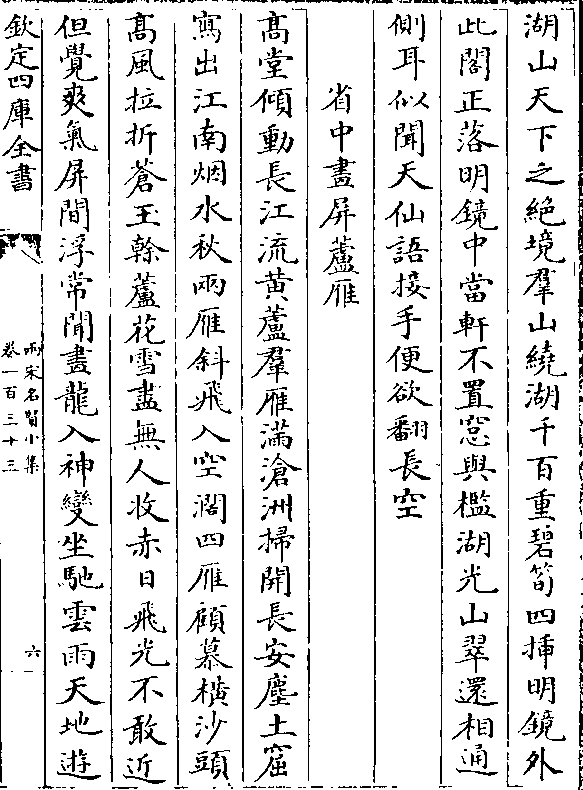 湖山天下之絶境羣山繞湖千百重碧筍四揷明鏡外
此閣正落明鏡中當軒不置窓與檻湖光山翠還相通
側耳似聞天仙語接手便欲翻長空
省中畫屏蘆雁
高堂傾動長江流黄蘆羣雁滿滄洲掃開長安塵土窟
寫出江南烟水秋兩雁斜飛入空濶四雁顧慕橫沙頭
髙風拉折蒼玉幹蘆花雪盡無人收赤日飛光不敢近
但覺爽氣屏間浮常聞畫龍入神變坐馳雲雨天地遊
欽定四庫全書
兩宋名賢小集
卷一百三十三
六